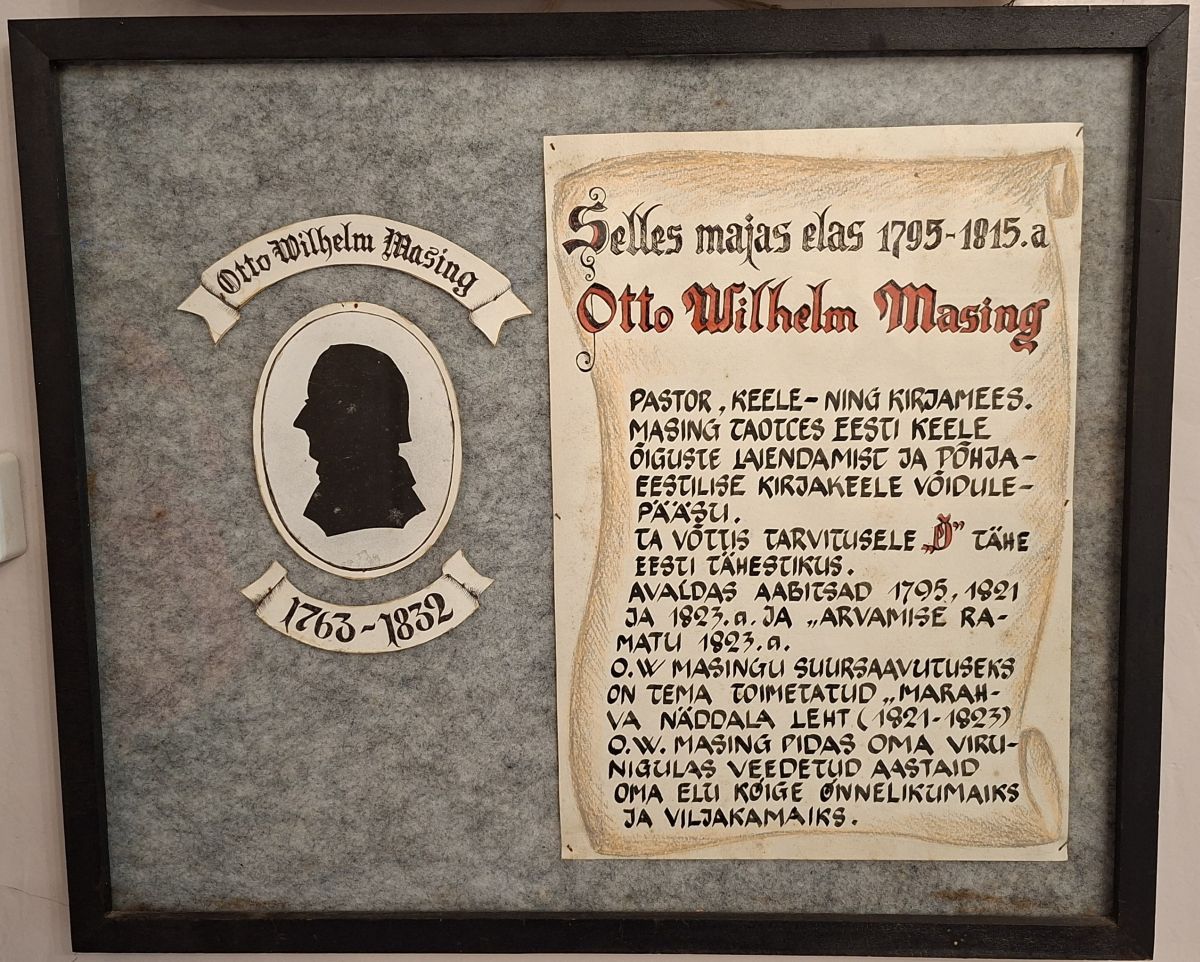 Otto Wilhelm Masing
1763-1832
Selles majas elas 1795-1815.a
Otto Wilhelm Masing
PASTOR, KEELE- NING KIRJAMEES.
MASING TAOTCES EESTI KEELE
ÕIGUSTE LAIENDAMIST JA PÕHJA-
EESTILISE KIRJAKEELE VÕIDULE-
PÄÄSU.
TA VÕTTIS TARVITUSELE „Õ” TÄHE
EESTI TÄHESTIKUS.
AVALDAS AABITSAD 1795, 1821
JA 1823.a. JA „ARVAMISE RA-
MATU 1823.a.
O.W MASINGU SUURSAAVUTUSEKS
ON TEMA TOIMETATUD „MARAH-
VA NÄDDALA LEHT (1821-1823)
O.W. MASING PIDAS OMA VIRU-
NIGULAS VEEDETUD AASTAID
OMA ELU KÕIGE ÕNNELIKUMAIKS
JA VILJAKAMAIKS.